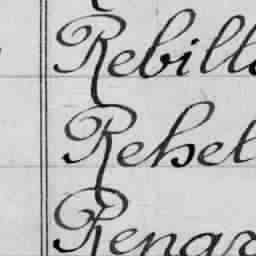 Rebill
Rehet
Rengr